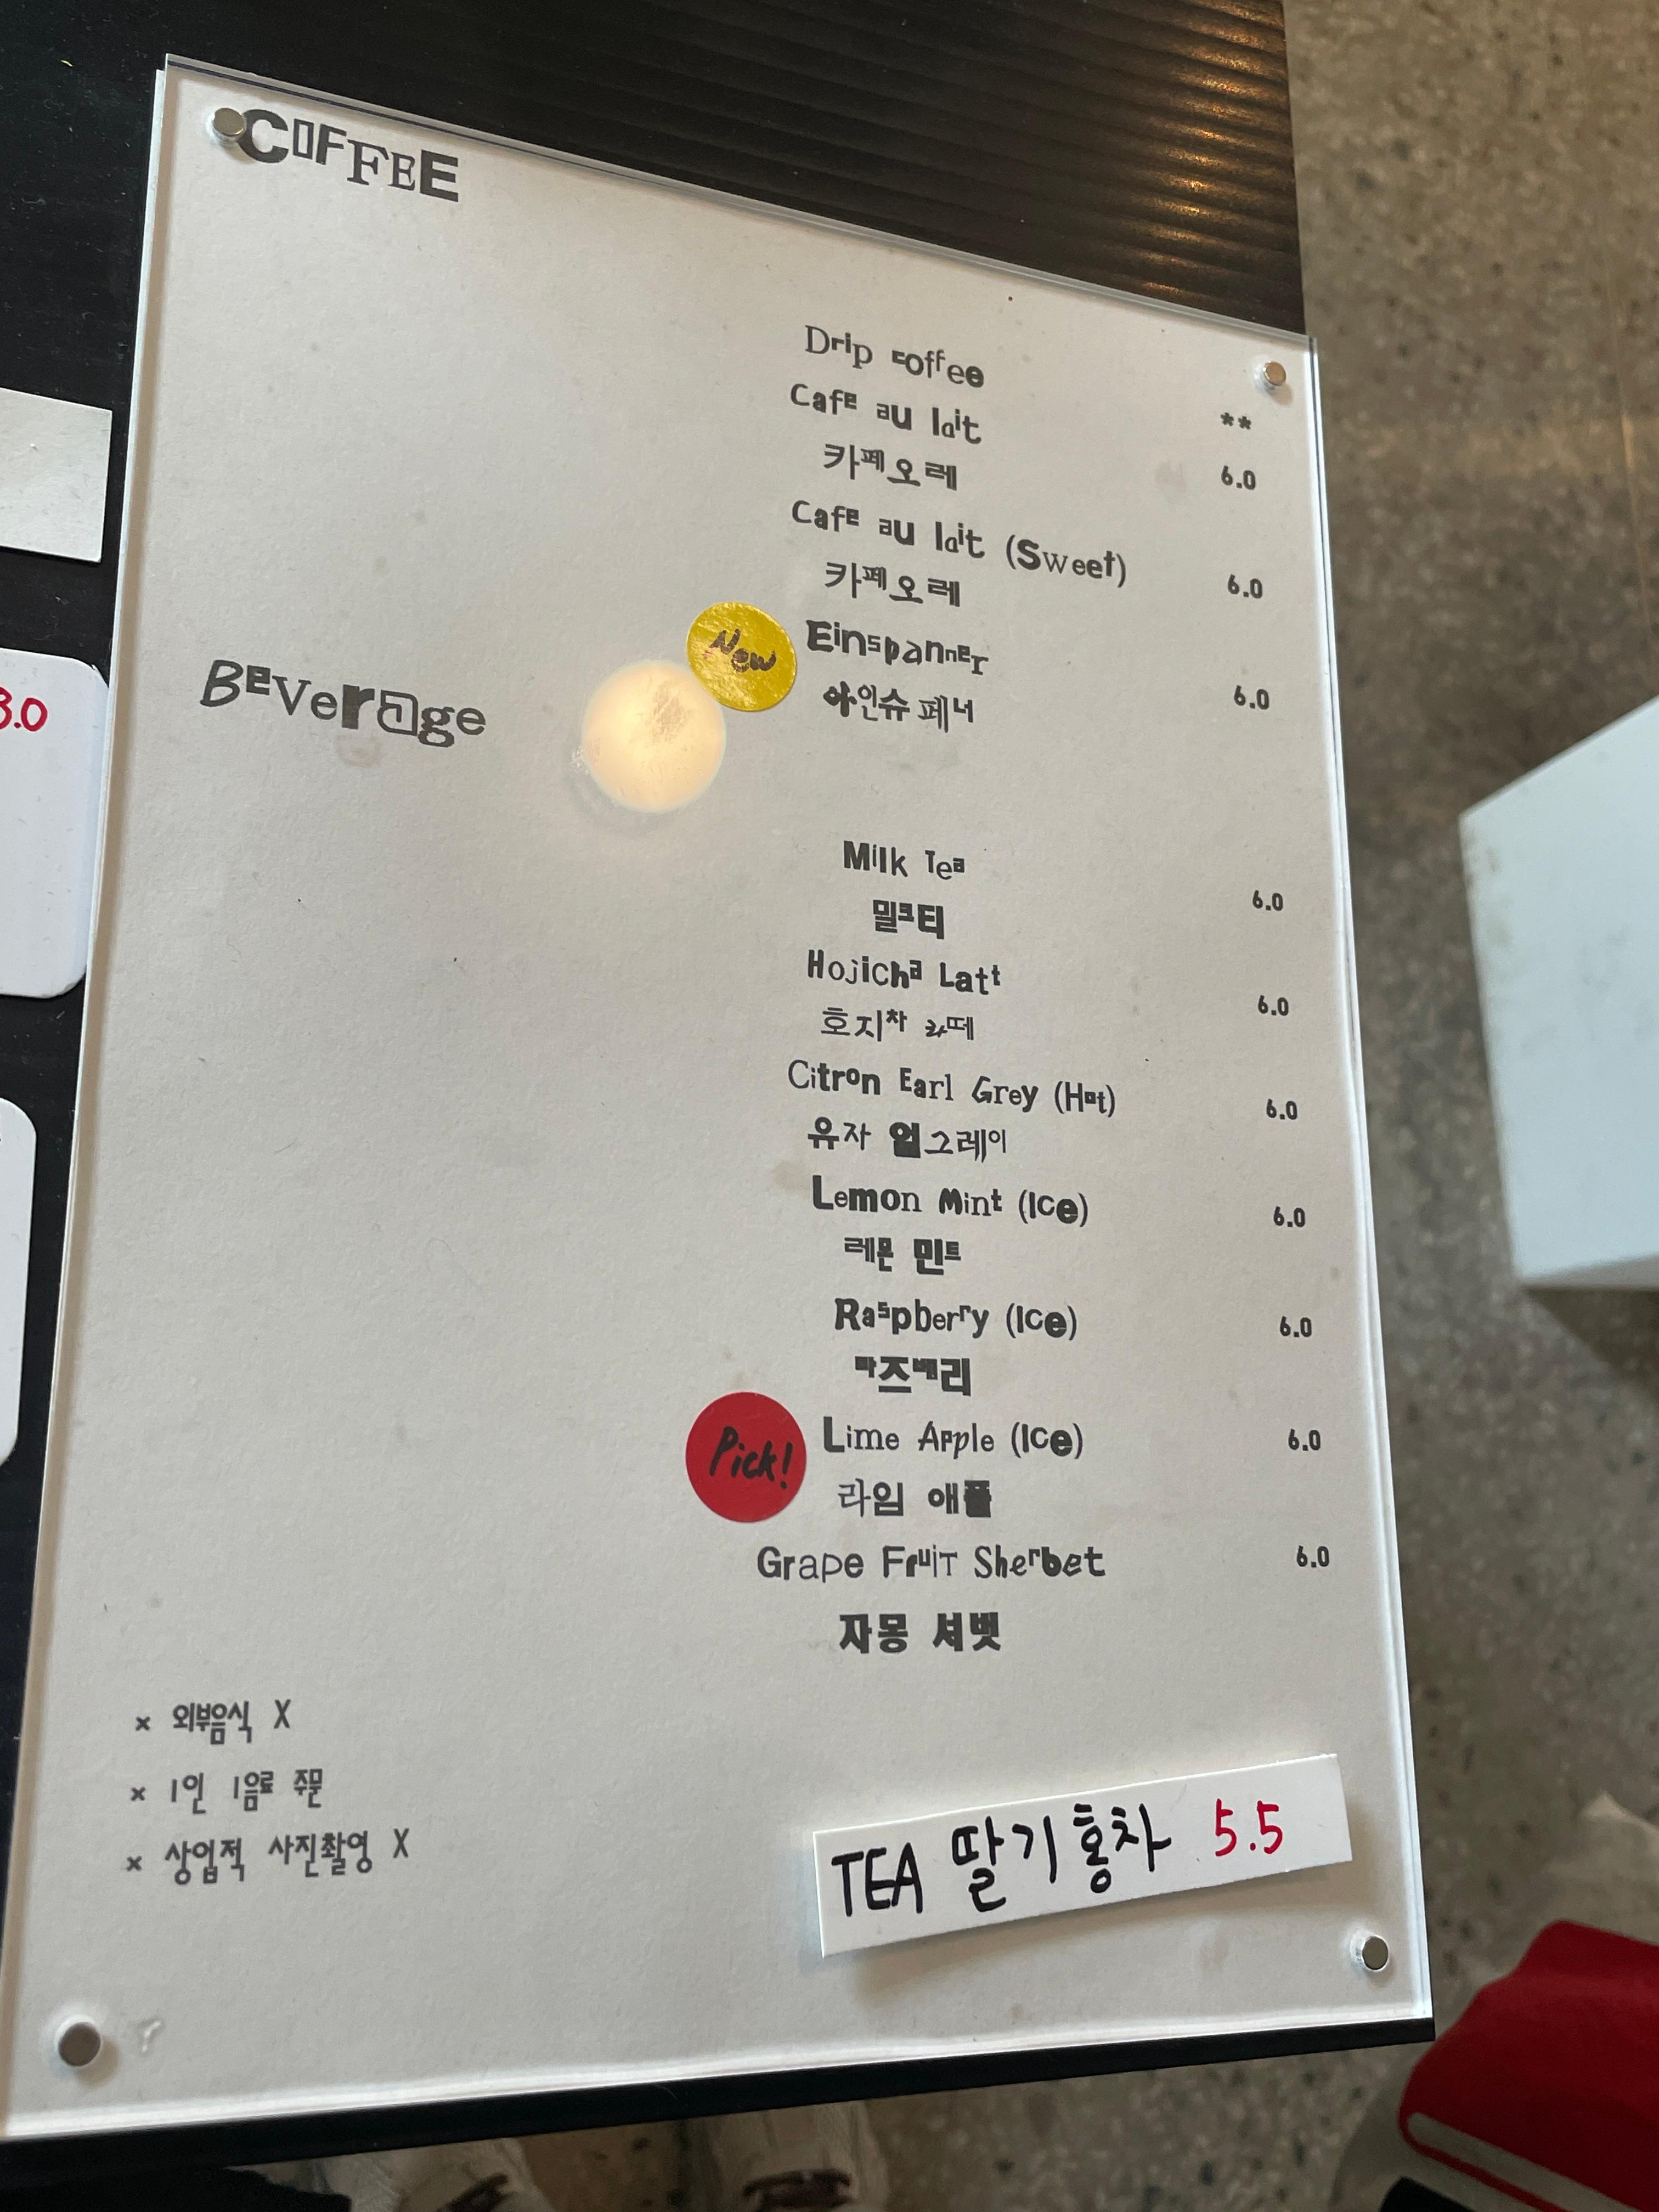 COFFEE
Drip coffee **
Cafe au lait 6.0
카페오레
Cafe au lait (Sweet) 6.0
카페오레
New Einspanner 6.0
아인슈페너
Beverage
Milk Tea 6.0
밀크티
Hojicha Latt 6.0
호지차 라떼
Citron Earl Grey (Hot) 6.0
유자 얼그레이
Lemon Mint (Ice) 6.0
레몬 민트
Raspberry (Ice) 6.0
라즈베리
Pick! Lime Apple (Ice) 6.0
라임 애플
Grape Fruit Sherbet 6.0
자몽 셔벗
× 외부음식 X
× 1인 1음료 주문
× 상업적 사진촬영 X
TEA 딸기홍차 5.5